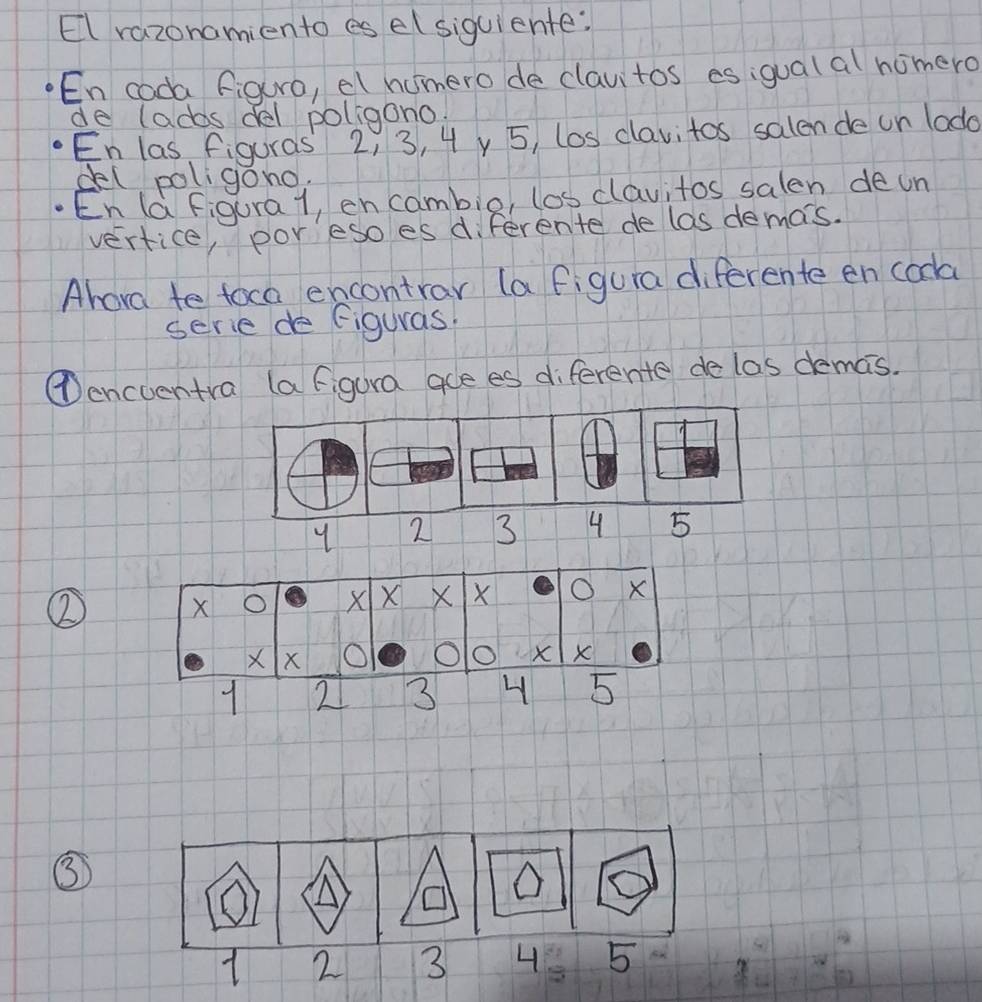 El razonamiento es el siguiente:
• En cada figura, el número de clavitos es igual al número
de lados del poligono.
• En las figuras 2, 3, 4 y 5, los clavitos salen de un lado
del poligono.
• En la figura 1, en cambio, los clavitos salen de un
vértice, por eso es diferente de las demás.
Ahora te toca encontrar la figura diferente en cada
serie de figuras.
① encuentra la figura que es diferente de las demás.
1 2 3 4 5
②
x o ● x x x x ● o x
● x x o ● o o x x ●
1 2 3 4 5
③
1 2 3 4 5